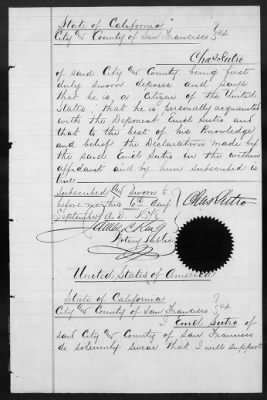 State of California
City & County of San Francisco } ss
Chas Sutro
of said City & County being first
duly sworn deposes and says
that he is a citizen of the United
States, that he is personally acquainted
with the Deponent Emil Sutro and
that to the best of his knowledge
and belief the Declaration made by
the said Emil Sutro in the within
affidavit and by him subscribed is
true
Subscribed & Sworn to
before me this 6th day
September A.D.
Chas Sutro
Notary Public
United States of America
State of California
City & County of San Francisco } ss
I Emil Sutro of
said City & County of San Francisco
do solemnly swear that I will support